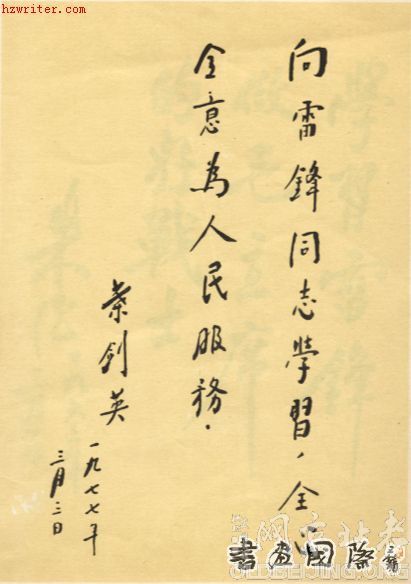 hzwriter.com
向雷鋒同志學習，全心
全意為人民服務．
葉剑英
一九七七年
三月三日
書画國際
OLDBEIJING.ORG